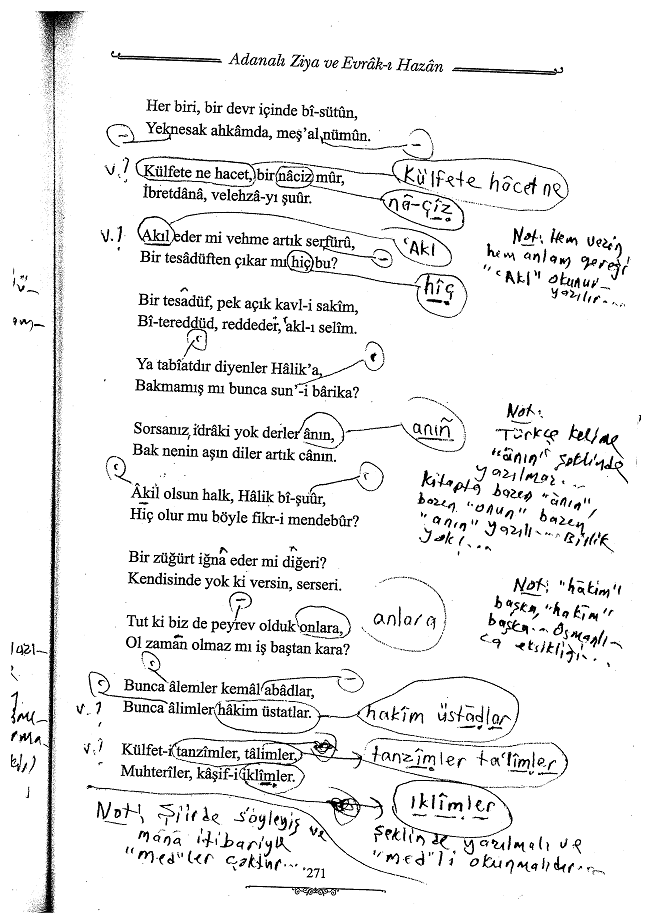 Adanalı Ziya ve Evrâk-ı Hazân
Her biri, bir devr içinde bî-sütûn,
Yeknesak ahkâmda, meş'al nümûn.
v.? Külfete ne hacet, bir nâciz mûr, Külfete hâcet ne
İbretdânâ, velehzâ-yı şuûr. nâ-çîz
v.? Akıl eder mi vehme artık serfürû, 'Akl
Bir tesâdüften çıkar mı hiç bu? hîç
Not: Hem vezin
hem anlam gereği
"'Akl" okunur
yazılır....
Bir tesadüf, pek açık kavl-i sakîm,
Bî-tereddüd, reddeder, akl-ı selîm.
Ya tabîatdır diyenler Hâlik'a,
Bakmamış mı bunca sun'-i bârika?
Sorsanız, idrâki yok derler ânın, anıñ
Bak nenin aşın diler artık cânın.
Not:
Türkçe kelime
"ânın" şeklinde
yazılmaz....
Kitapta bazen "ânın",
bazen "onun" bazen
"anın" yazılı.... Birlik
yok!...
Âkil olsun halk, Hâlik bî-şuûr,
Hiç olur mu böyle fikr-i mendebûr?
Bir züğürt iğnâ eder mi diğeri?
Kendisinde yok ki versin, serseri.
Not: "hâkim"
başka, "hakîm"
başka... Osmanlı-
ca eksikliği...
Tut ki biz de peyrev olduk onlara, anlara
Ol zamân olmaz mı iş baştan kara?
Bunca âlemler kemâl abâdlar,
v.? Bunca âlimler hâkim üstatlar. hakîm üstâdlar
v.? Külfet-i tanzîmler, tâlimler, tanzîmler ta'lîmler
Muhteriler, kâşif-i iklîmler. ıklîmler
Not: Şiirde söyleyiş ve
mânâ itibariyle
"med"ler çoktur....
şeklinde yazılmalı ve
"med"li okunmalıdır...
271